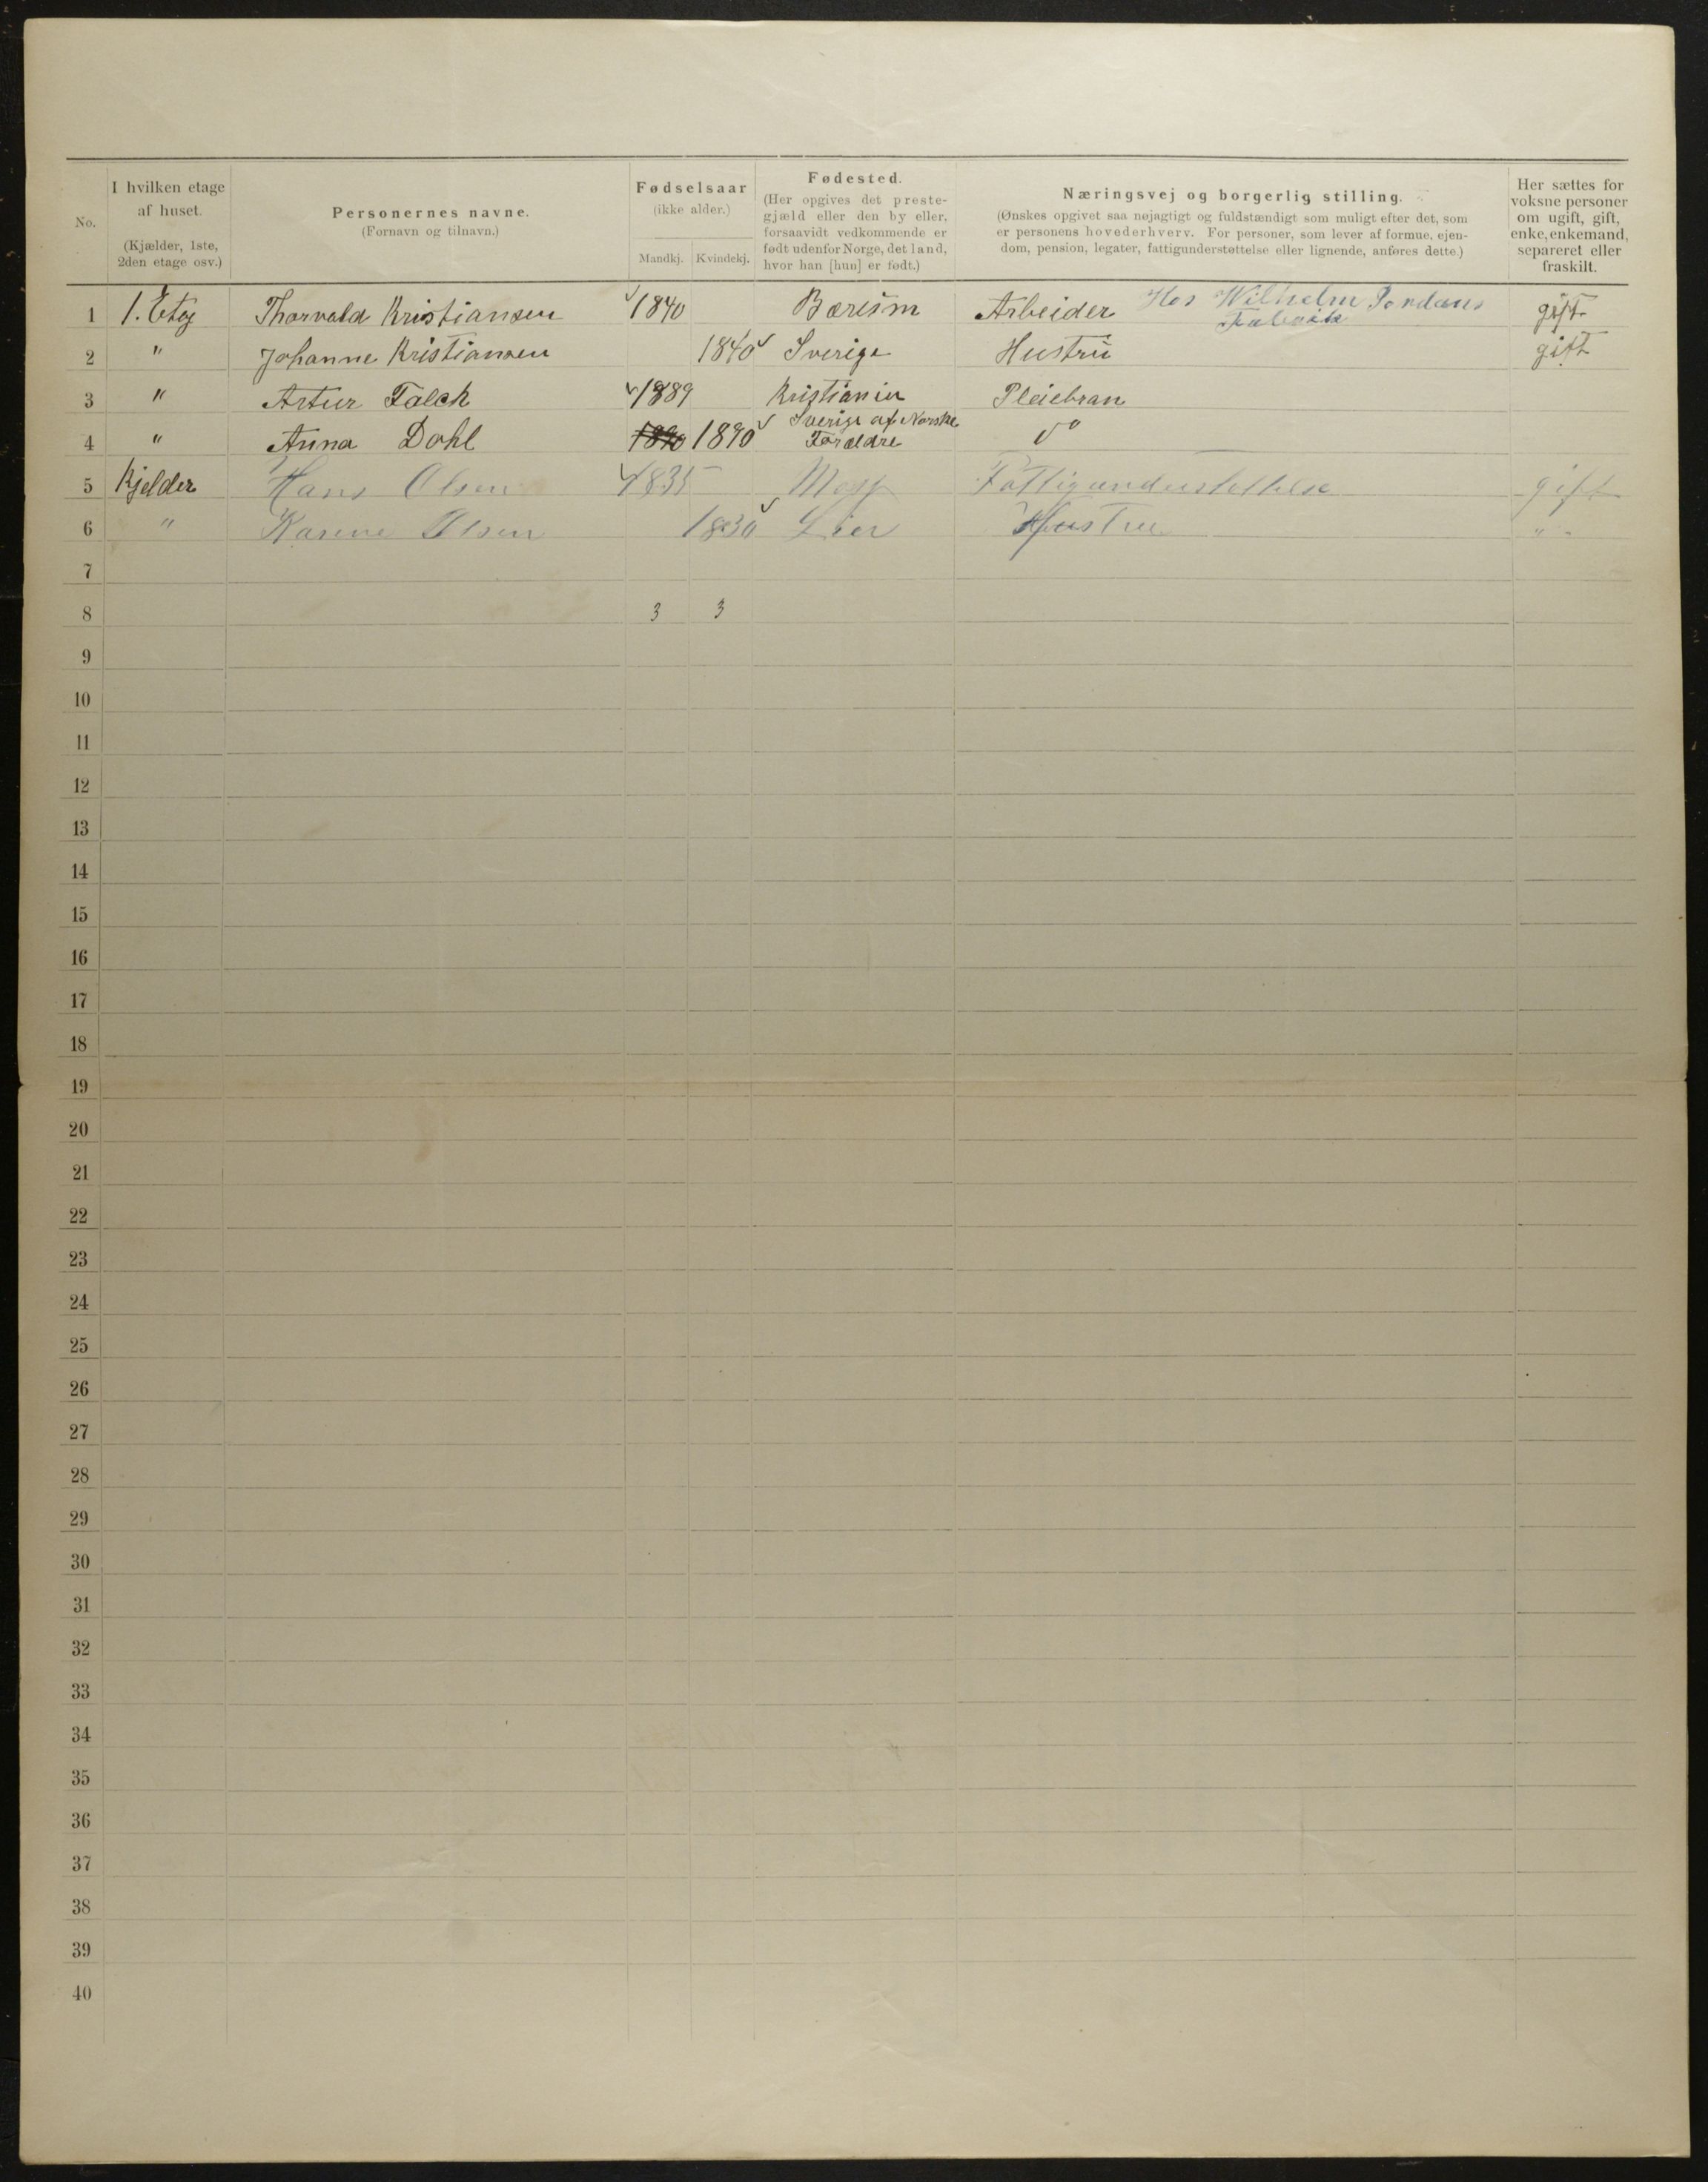 No.
I hvilken etage
af huset.
(Kjælder, 1ste,
2den etage osv.)
Personernes navne.
(Fornavn og tilnavn.)
Fødselsaar
(ikke alder.)
Mandkj. Kvindekj.
Fødested.
(Her opgives det preste-
gjæld eller den by eller,
forsaavidt vedkommende er
født udenfor Norge, det land,
hvor han [hun] er født.)
Næringsvej og borgerlig stilling.
(Ønskes opgivet saa nøjagtigt og fuldstændigt som muligt efter det, som
er personens hovederhverv. For personer, som lever af formue, ejen-
dom, pension, legater, fattigunderstøttelse eller lignende, anføres dette.)
Her sættes for
voksne personer
om ugift, gift,
enke, enkemand,
separeret eller
fraskilt.
1 1. Etag Thorvald Kristiansen 1840 Bærum Arbeider Hos Wilhelm Jordans gift
Fabrik
2 " Johanne Kristiansen 1840 Sverige Hustru gift
3 " Artur Falch 1889 Kristiania Pleiebran
Sverige af Norske
4 " Anna Dahl 1890 1890 Foræeldre do
5 Kjelder Hans Olsen 1835 Moss Fattigunderstettelse gift
6 " Karine Olsen 1830 Lier Hustru "
7
8 3 3
9
10
11
12
13
14
15
16
17
18
19
20
21
22
23
24
25
26
27
28
29
30
31
32
33
34
35
36
37
38
39
40